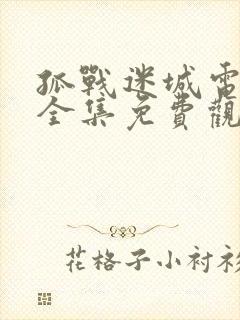 孤戰迷城電
全集免費觀
花格子小衬衫